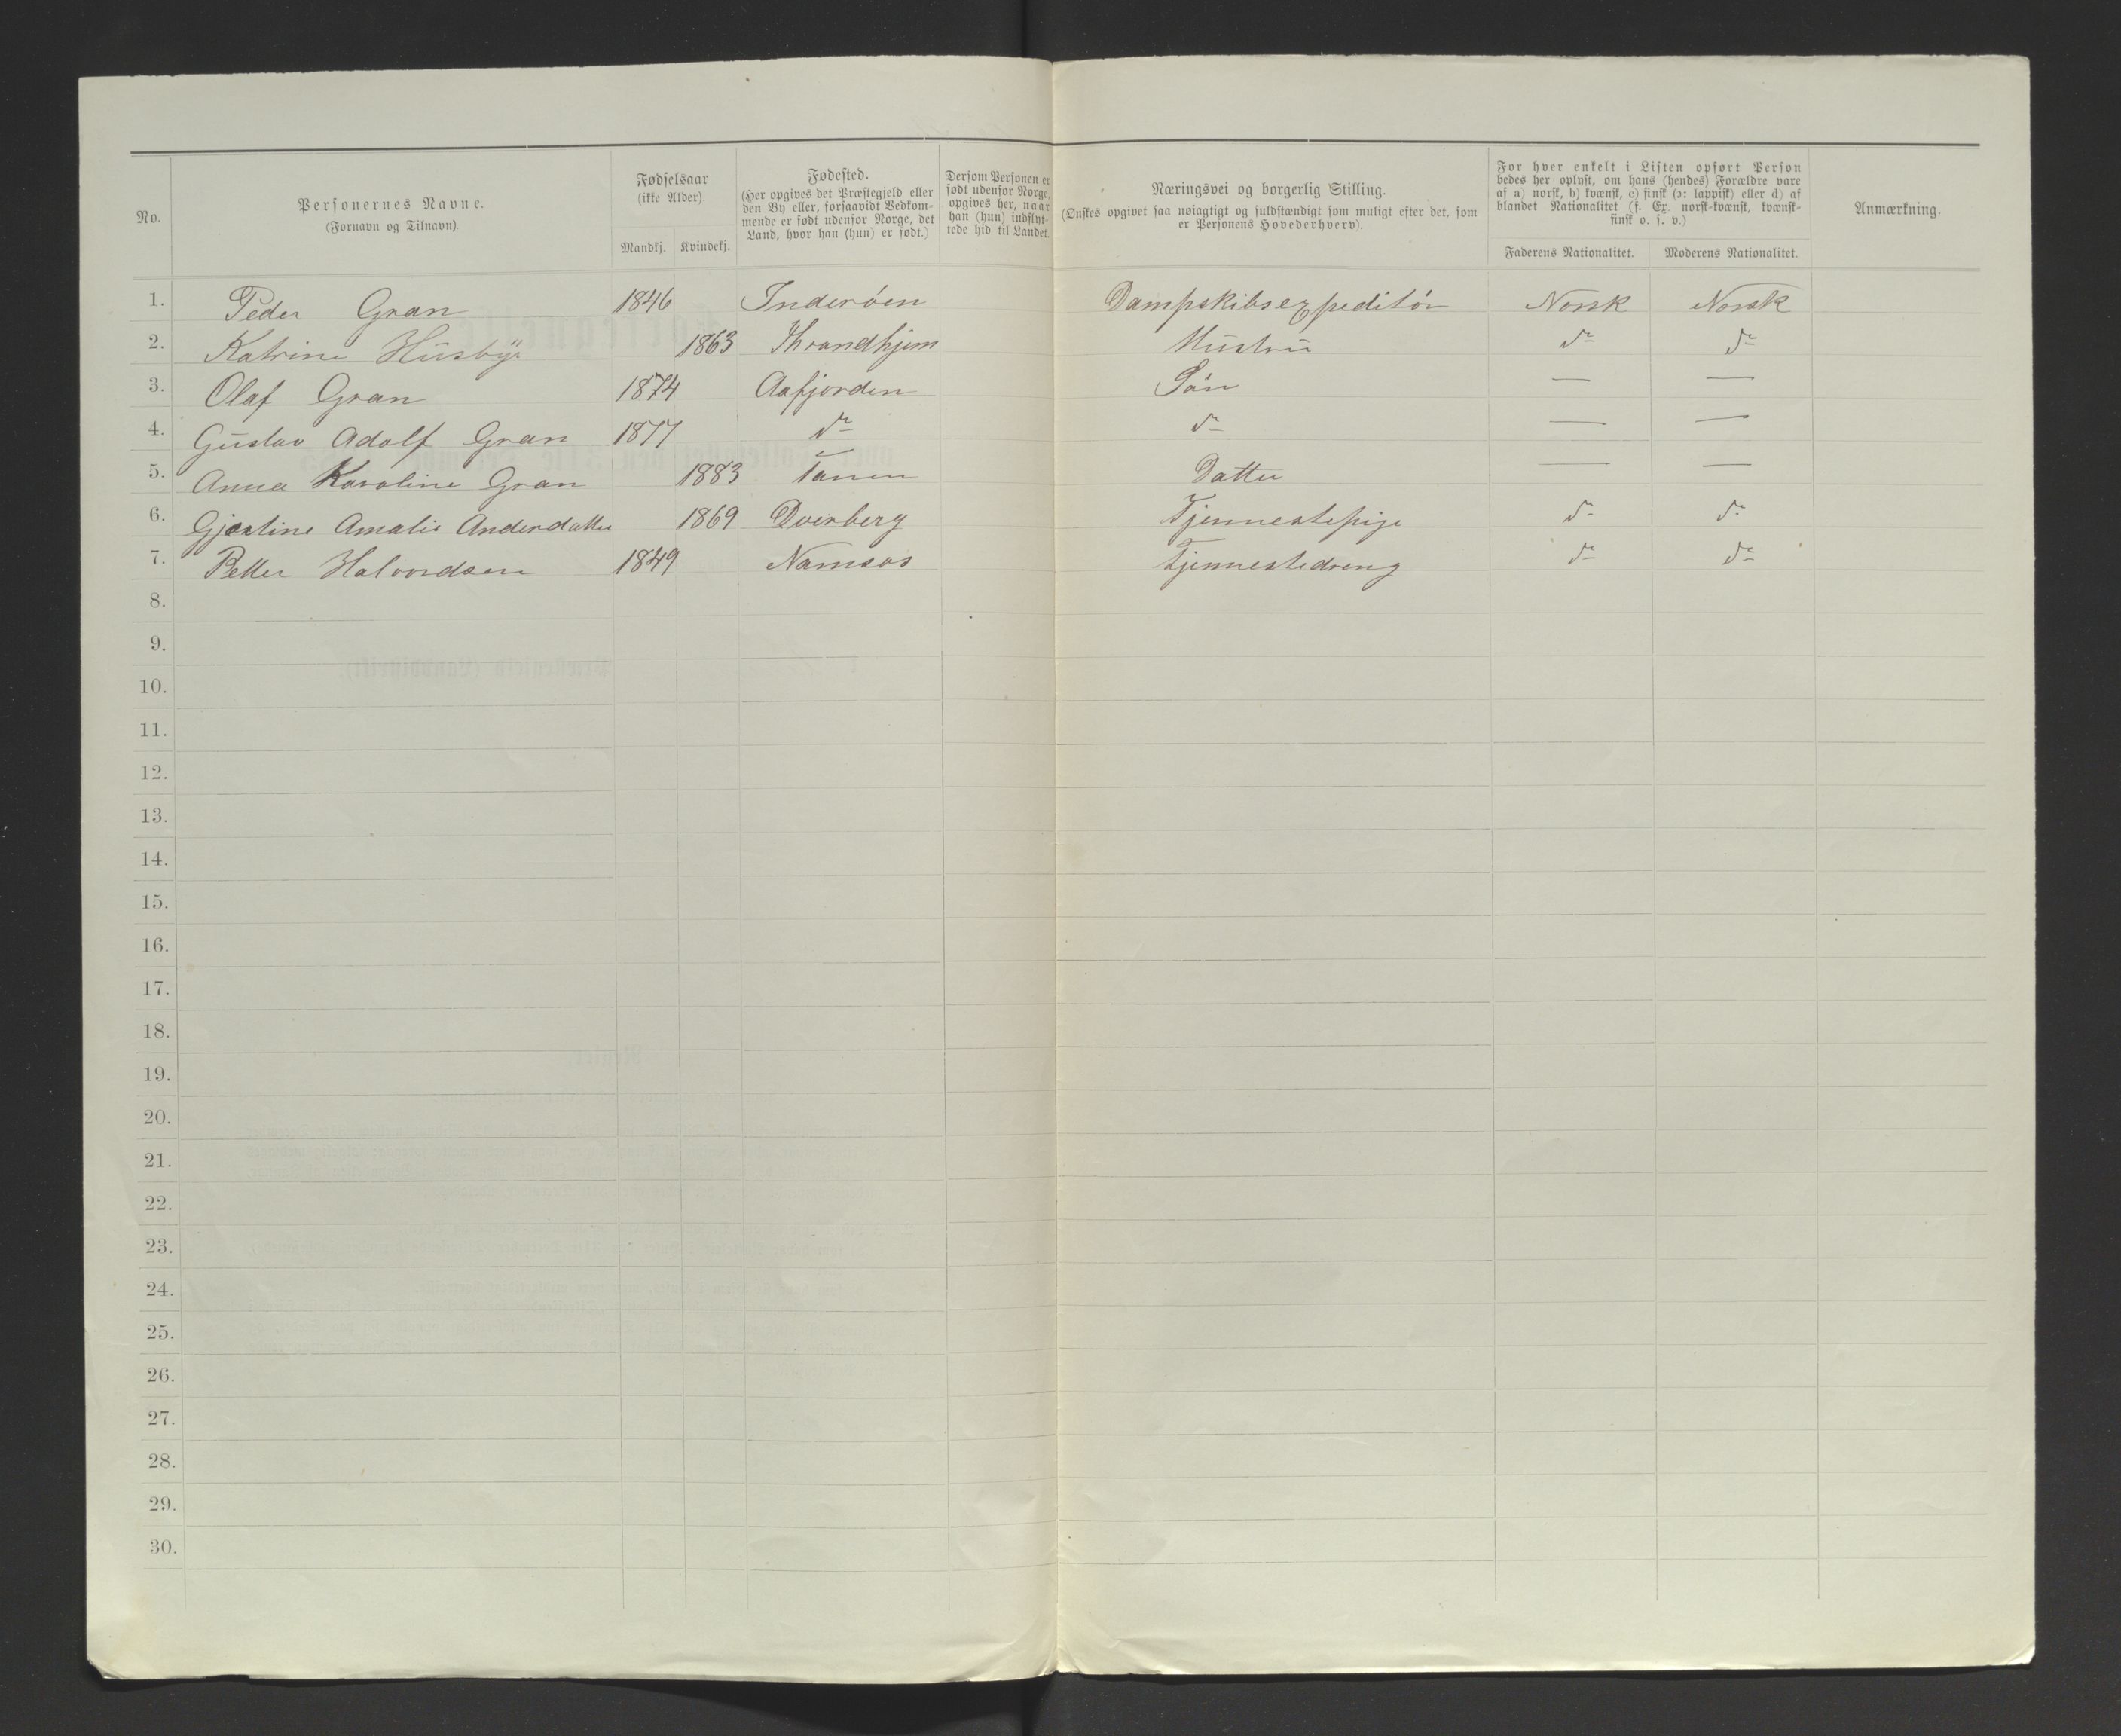 No.
Personernes Navne.
(Fornavn og Tilnavn).
Fødselsaar
(ikke Alder).
Mandkj. Kvindekj.
Fødested.
(Her opgives det Præstegjeld eller
den By eller, forsaavidt Vedkom-
mende er født udenfor Norge, det
Land, hvor han (hun) er født.)
Dersom Personen er
født udenfor Norge,
opgives her, naar
han (hun) indflyt-
tede hid til Landet.
Næringsvei og borgerlig Stilling.
(Ønskes opgivet saa nøiagtigt og fuldstændigt som muligt efter det, som
er Personens Hovederhverv).
For hver enkelt i Listen opført Person
bedes her oplyst, om hans (hendes) Forældre vare
af a) norsk, b) kvænsk, c) finsk (ɔ: lappisk) eller d) af
blandet Nationalitet (f. Ex. norsk-kvænsk, kvænsk-
finsk o. s. v.)
Faderens Nationalitet. Moderens Nationalitet.
Anmærkning.
1. Peder Gran 1846 Inderøen Dampskibsexpeditør Norsk Norsk
2. Katrine Husbye 1863 Thrandhjem Hustru do do
3. Olaf Gran 1874 Aafjorden Søn — —
4. Gustav Adolf Gran 1877 do do — —
5. Anna Karoline Gran 1883 Tanen Datter — —
6. Gjertine Amalie Andersdatter 1869 Dverberg Tjennestepige do do
7. Petter Halvordsen 1849 Namsos Tjennestedreng do do
8.
9.
10.
11.
12.
13.
14.
15.
16.
17.
18.
19.
20.
21.
22.
23.
24.
25.
26.
27.
28.
29.
30.